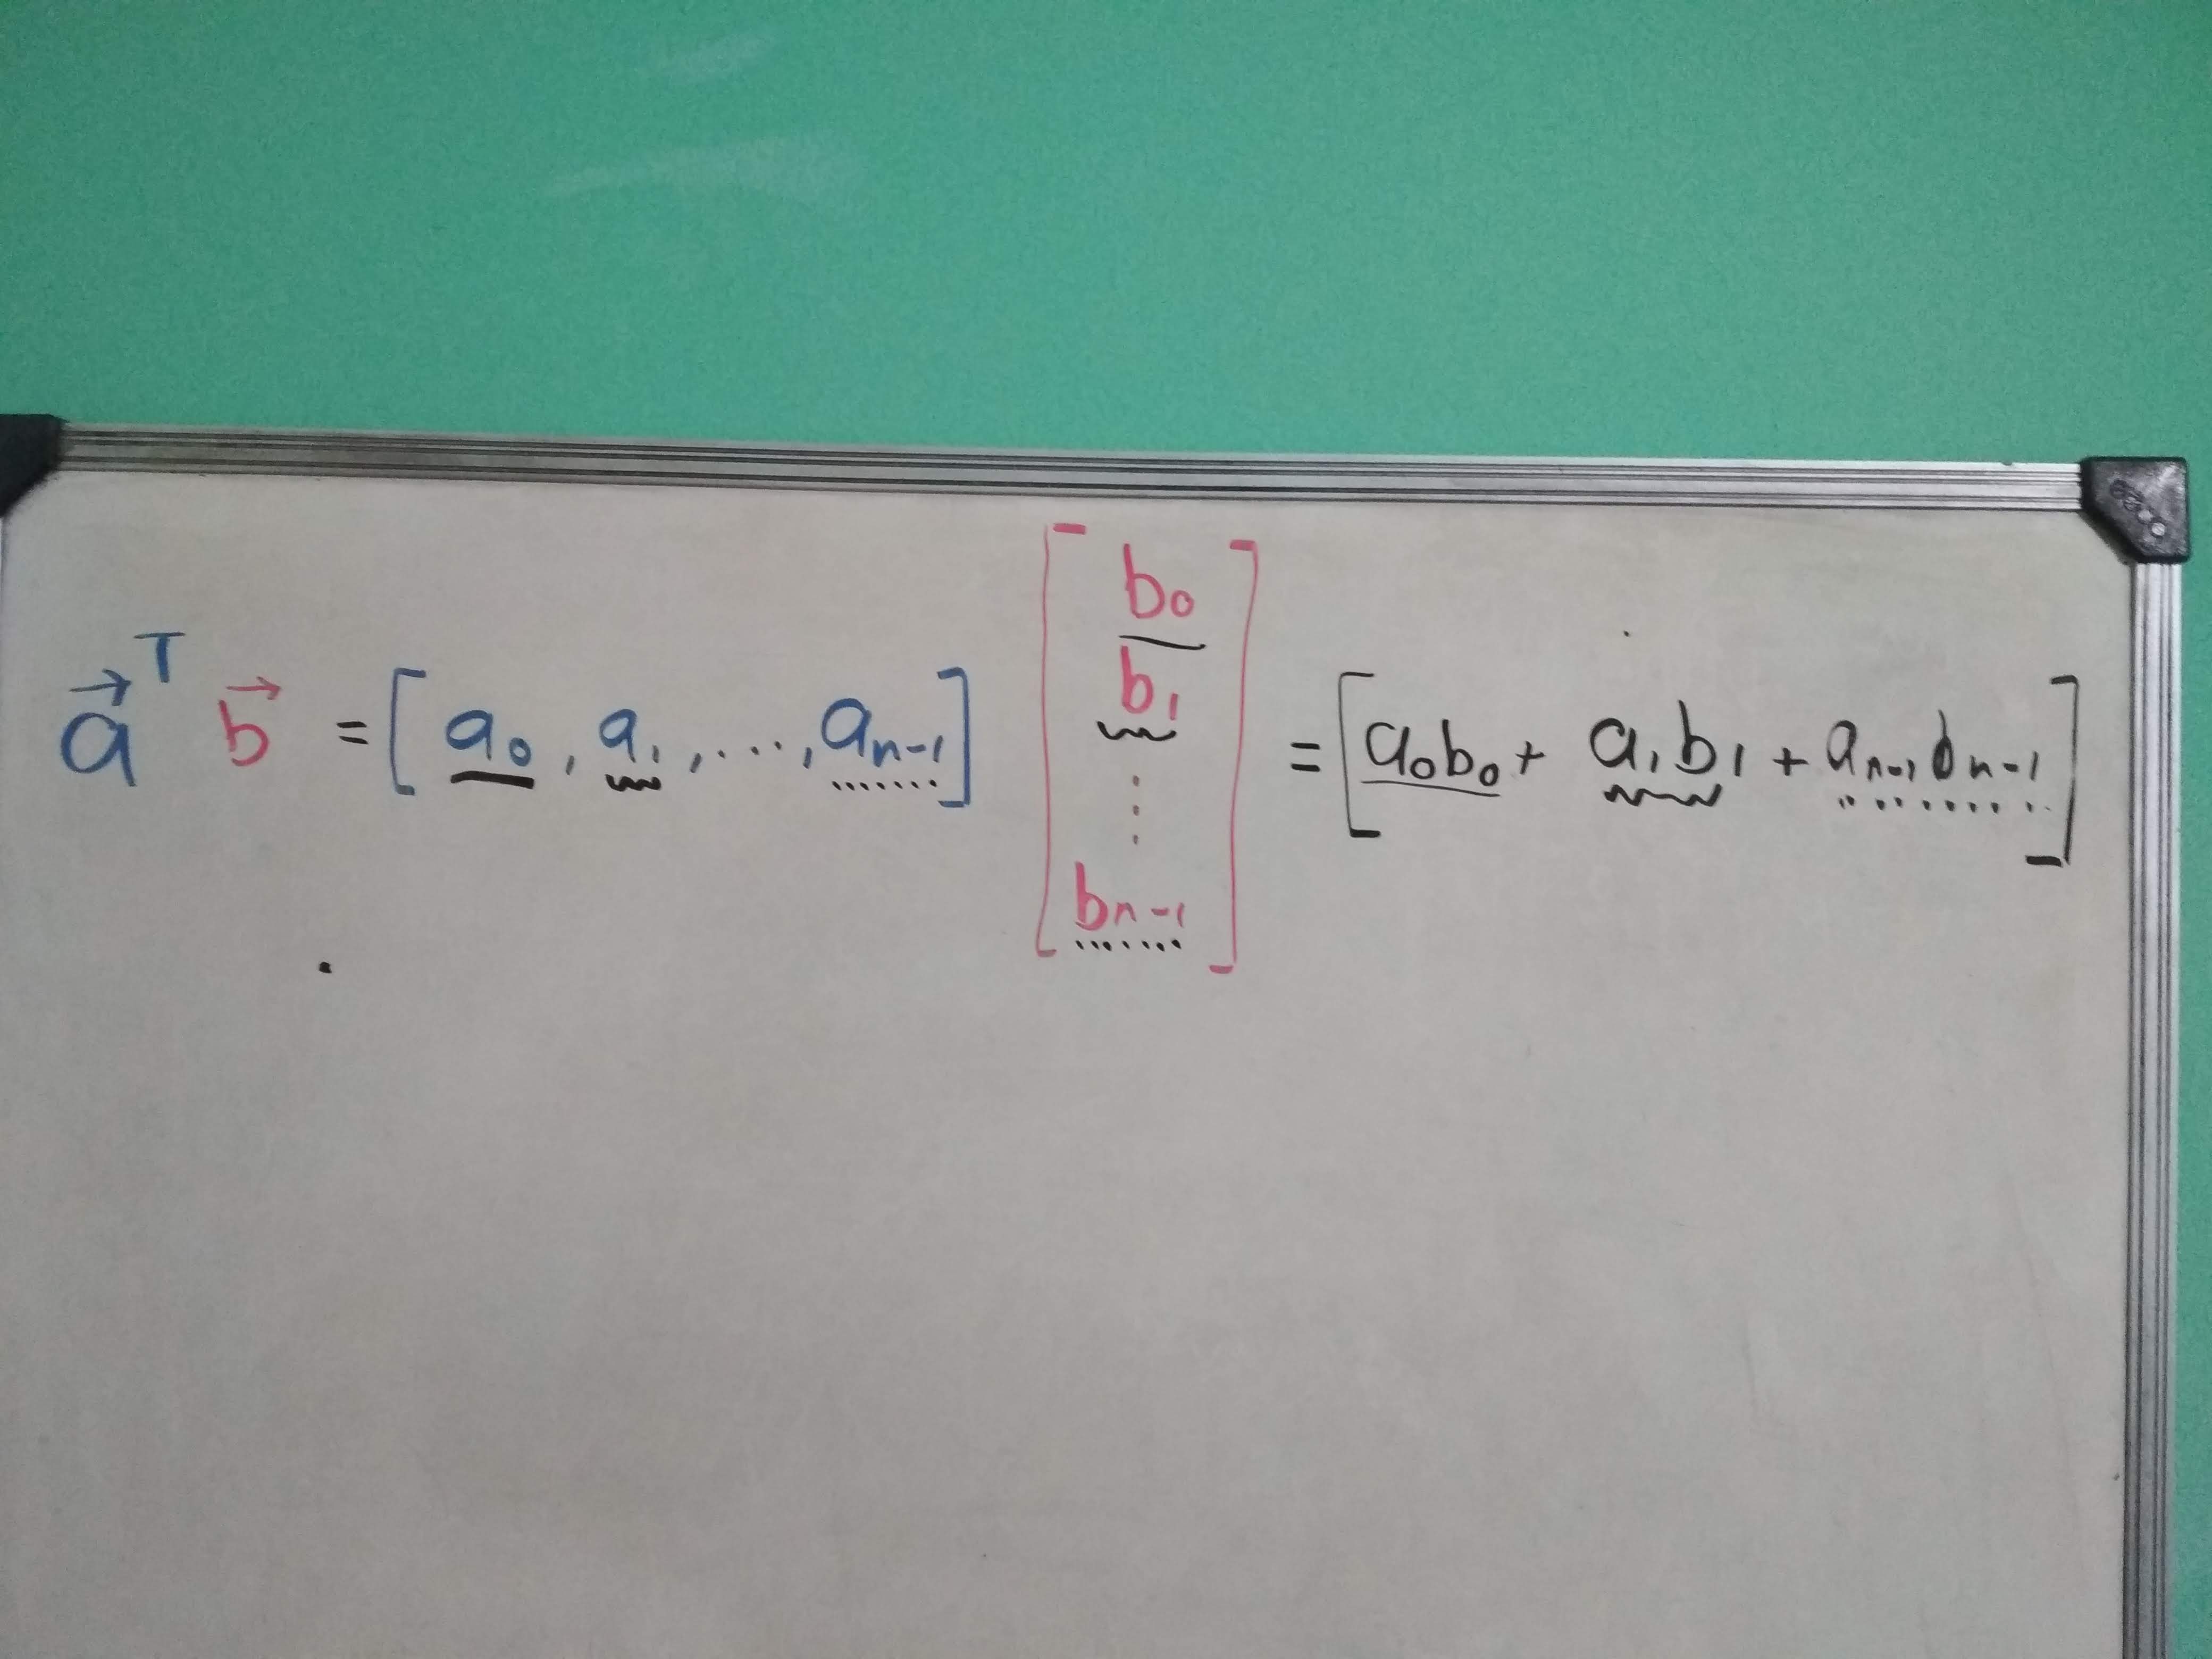 a⃗ᵀ b⃗ = [a₀, a₁, ..., aₙ₋₁] [b₀ b₁ ⋮ bₙ₋₁] = [a₀b₀ + a₁b₁ + aₙ₋₁bₙ₋₁]